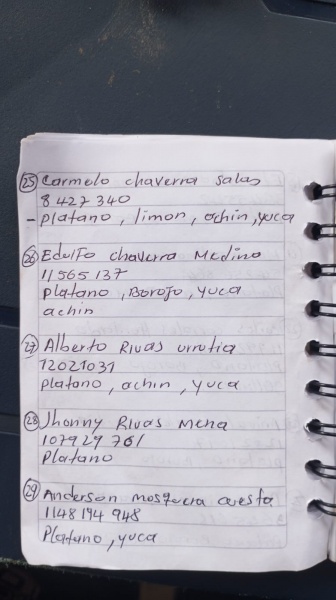 25 Carmelo chaverra salas
8427 340
- platano, limon, achin, yuca
26 Edulfo chaverra Medina
11565 137
platano, Borojo, yuca
achin
27 Alberto Rivas urrutia
12021031
platano, achin, yuca
28 Jhonny Rivas Mena
107929 761
Platano
29 Anderson mosquera cuesta
1148194 948
Platano, yuca